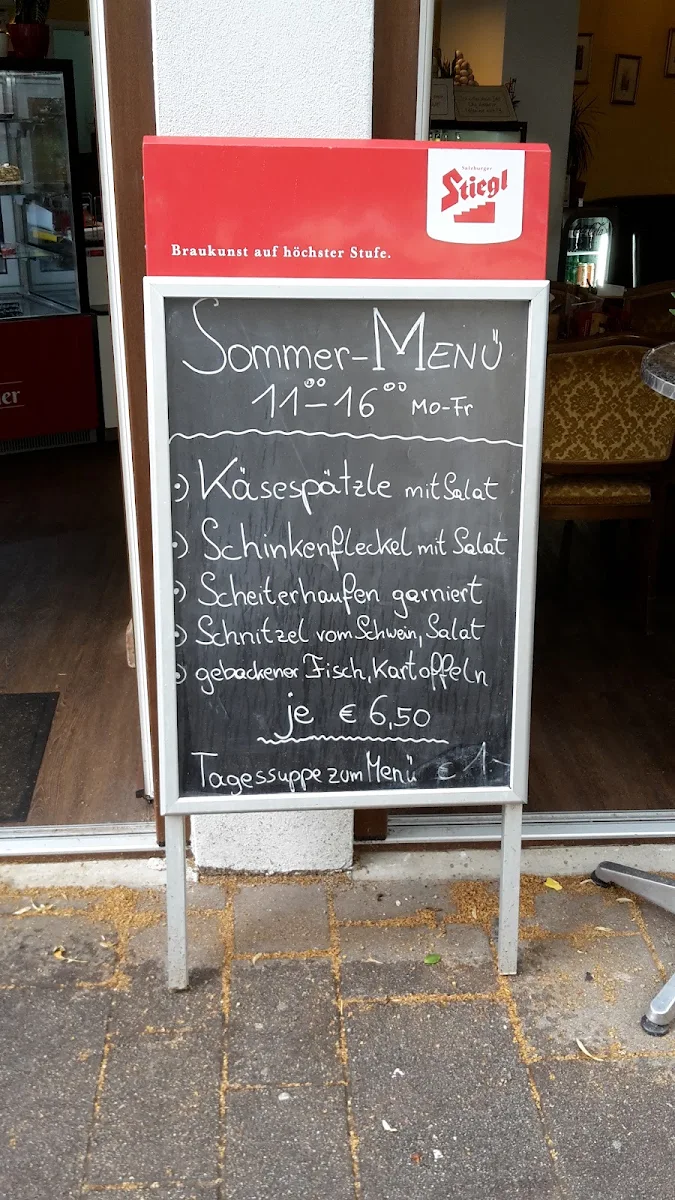 Salzburger
Stiegl
Braukunst auf höchster Stufe.
Sommer-MENÜ
11⁰⁰-16⁰⁰ MO-Fr
Käsespätzle mit Salat
Schinkenfleckel mit Salat
Scheiterhaufen garniert
Schnitzel vom Schwein, Salat
gebackener Fisch, Kartoffeln
je € 6,50
Tagessuppe zum Menü € 1,-